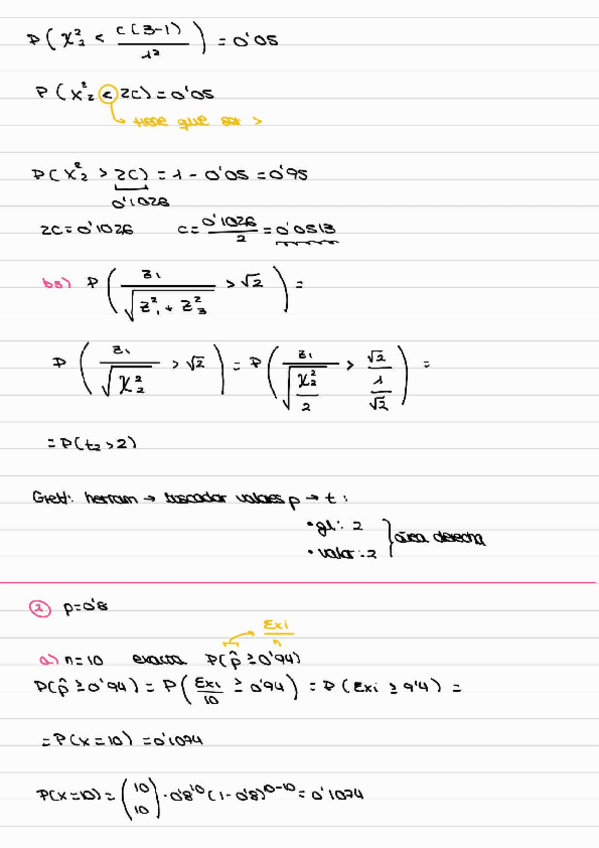 P( χ²₂ < c(3-1)/1² ) = 0'05
P( χ²₂ < 2c) = 0'05
tiene que ser >
P( χ²₂ > 2c) = 1 - 0'05 = 0'95
0'1026
2c = 0'1026 c = 0'1026/2 = 0'0513
b3) P( Z₁/√(Z²₁ + Z²₃) > √2 ) =
P( Z₁/√(χ²₂) > √2 ) = P( Z₁/√(χ²₂/2) > √2/(1/√2) ) =
= P(t₂ > 2)
Gretl: herram → buscador valores p → t:
• gl: 2
• valor: 2 } área derecha
② p = 0'8
Σxi
n
a) n = 10 exacta P(p̂ ≥ 0'94)
P(p̂ ≥ 0'94) = P( Σxi/10 ≥ 0'94 ) = P( Σxi ≥ 9'4) =
= P(x = 10) = 0'1074
P(x = 10) = (10 10) · 0'8¹⁰ (1 - 0'8)¹⁰⁻¹⁰ = 0'1074